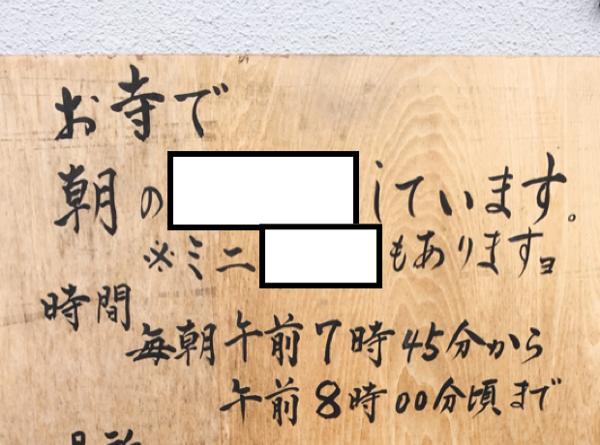 お寺で
朝の しています。
※ミニ もありますョ
時間
毎朝午前7時45分から
午前8時00分頃まで